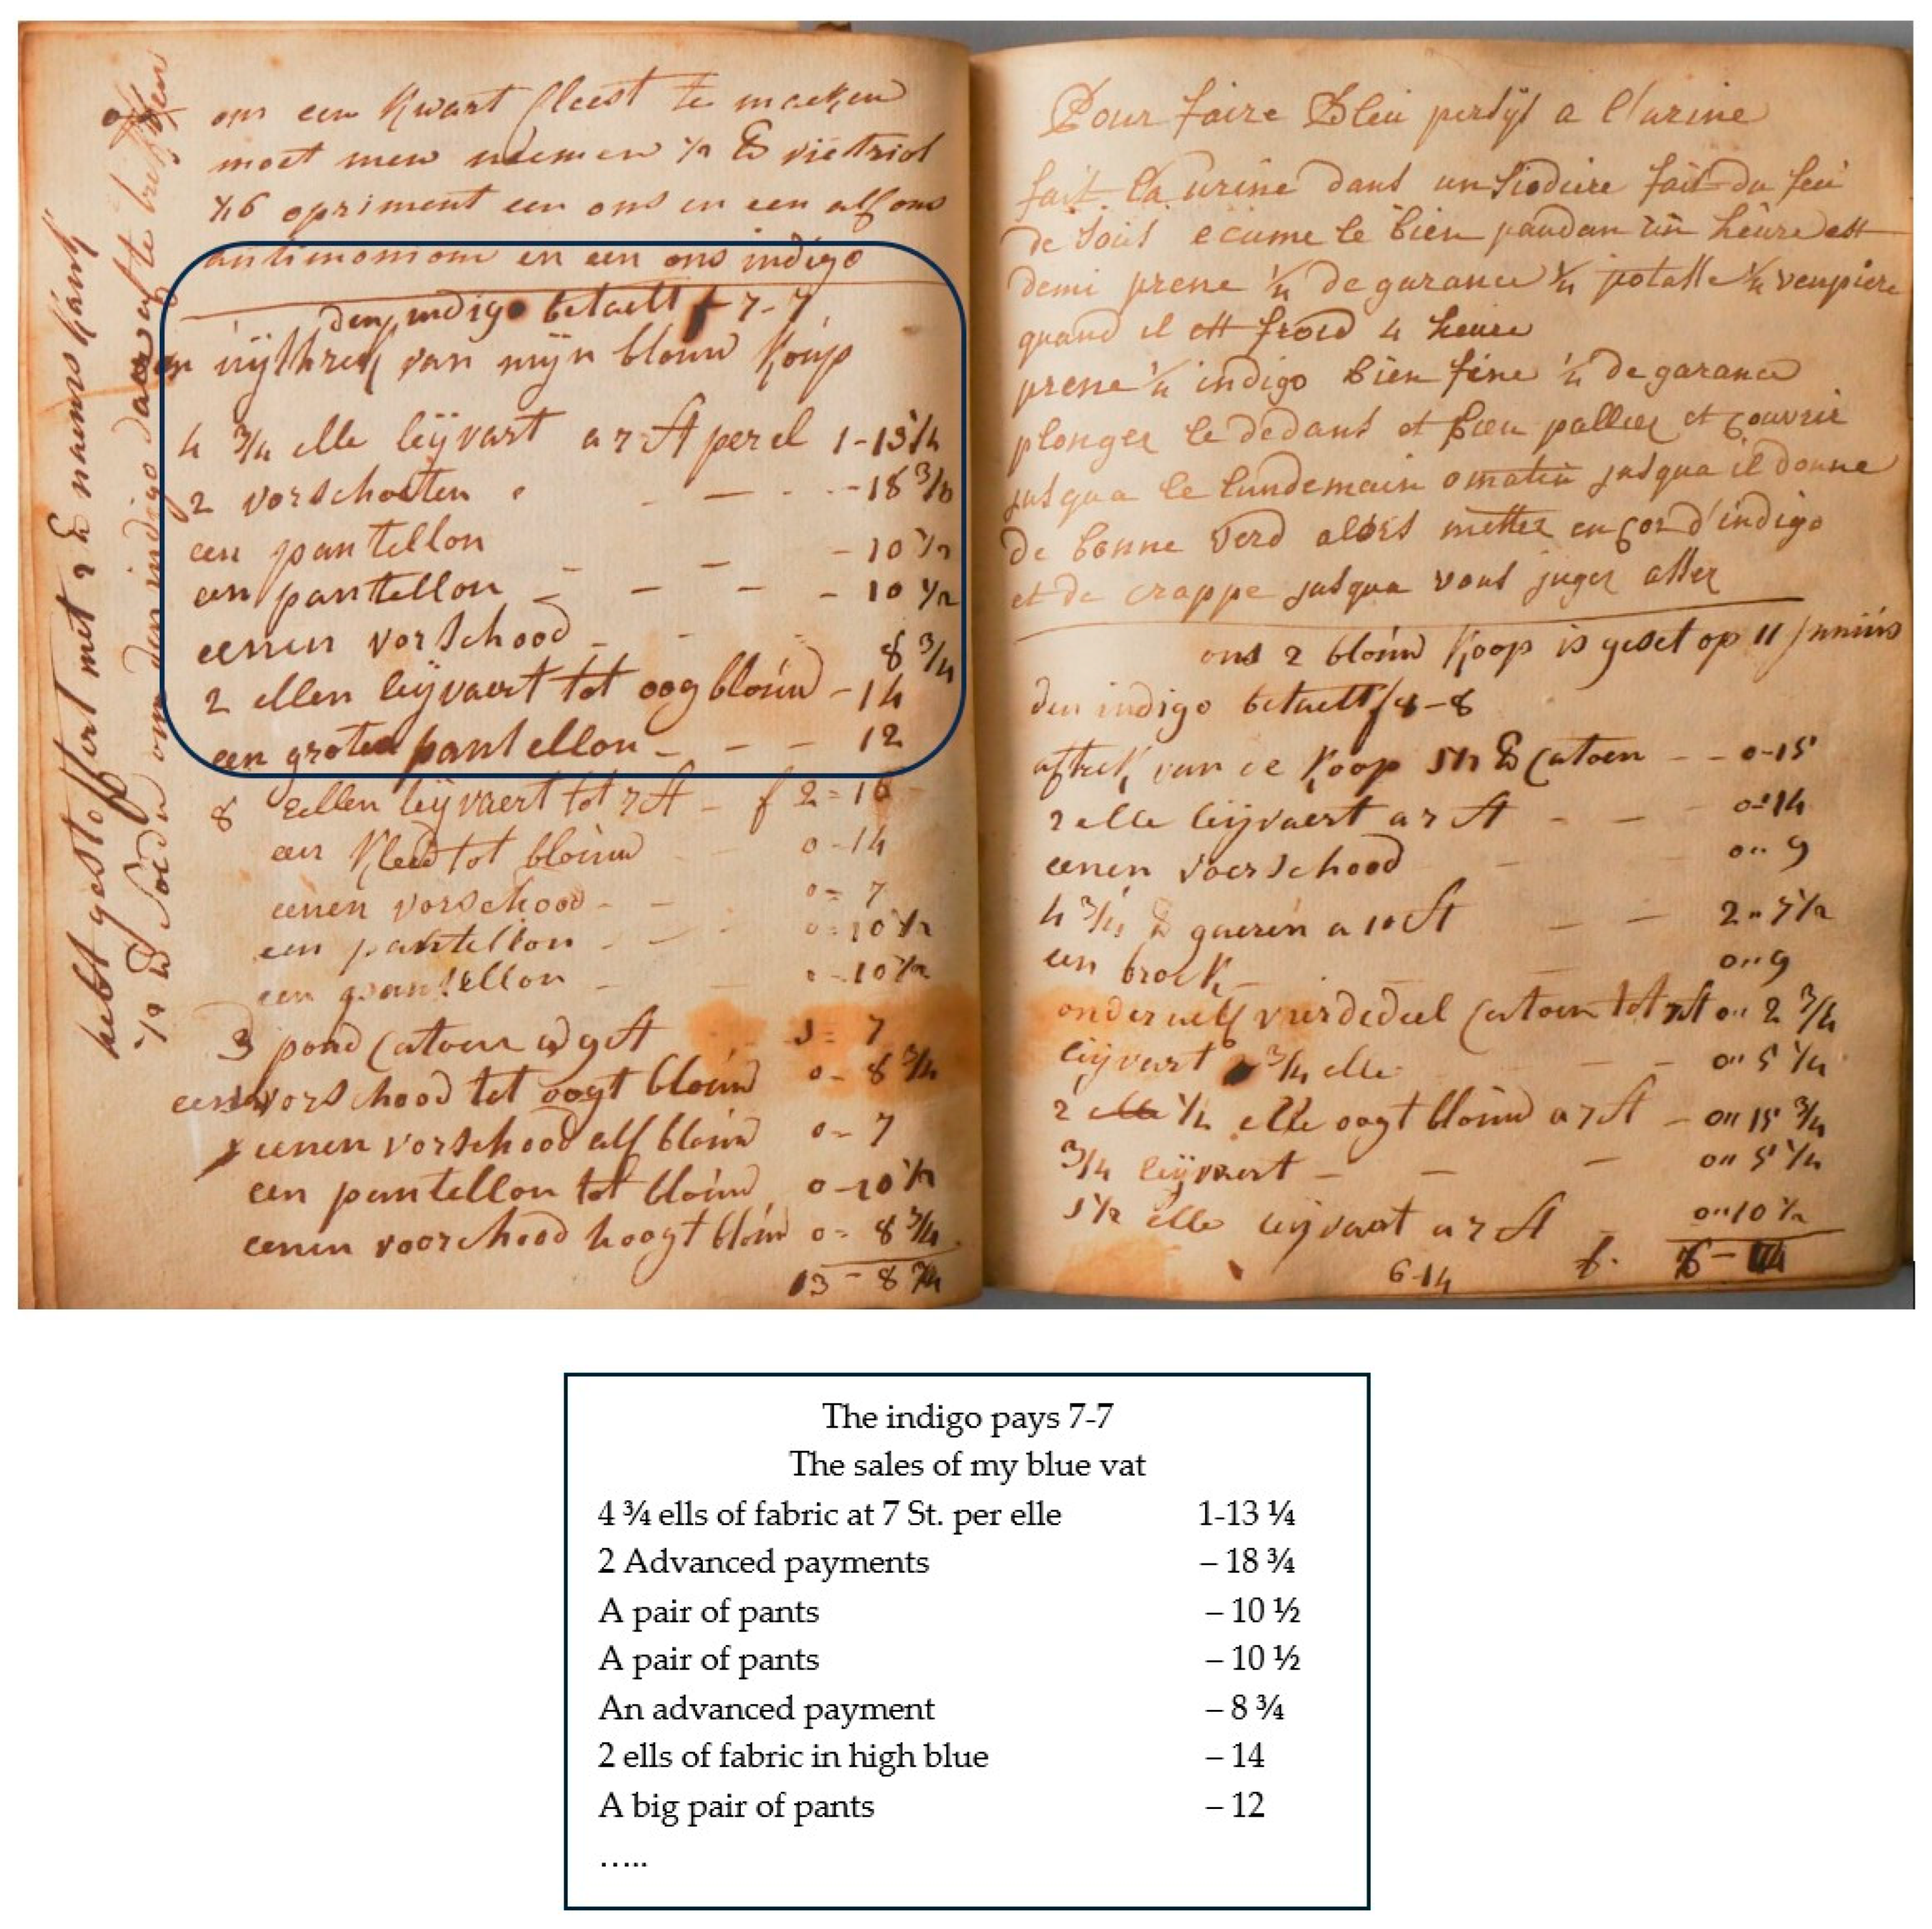 om een kwart fleest te maeken
moet men neemen ½ ℔ vietriol
1/16 opriment een ons en een alf ons
antimoniom en een ons indigo
den indigo betaelt f 7-7
van mijn blouw kúip
4 ¾ elle leÿvart a 7 St per el 1-13 ¼
2 vorschooten - - - 18 ¾
een pantellon - - - 10 ½
een pantellon - - - - 10 ½
eenen vorschood - - - 8 ¾
2 ellen leÿvaert tot oog bloúw - 14
een groten pantellon - - - 12
8 ellen leÿvaert tot 7 St - f 2=16
een kleed tot bloúw - - 0-14
eenen vorschood - - 0= 7
een pantellon - - 0=10 ½
een pantellon - - 0-10 ½
3 pond Catoen a 9 St 1= 7
eenen vorschood tot oogt bloúw 0- 8 ¾
eenen vorschood alf bloúw 0- 7
een pantellon tot bloúw 0-10 ½
eenen voorschood hoogt bloúw 0= 8 ¾
13 - 8 ¾
hebt gestoffert met 2 ℔ naems
½ ℔ om den indigo daer af te trekken
Pour faire Bleu persÿs a l'urine
fait la urine dans un fait du feú
de soús ecúme le bien pandan ún heúre est
demi prene ¼ de garance ¼ potasse ¼ veupiere
quand il est froid 4 heure
prene ¼ indigo bien fine ¼ de garance
plonger le dedans et bien pallier et couvrir
jusqua le lundemain omatin jusqua il donne
de bonne verd alors metter encor d'indigo
et de crappe jusqua vous juger asser
ons 2 bloúw koop is geset op 11 júniús
den indigo betaelt f 4-8
aftrek van de koop 1½ ℔ Catoen - - 0-15
2 elle leÿvaert a 7 St - - 0=14
eenen voorschood - 0" 9
4 ¾ ℔ gaeren a 10 St - - 2" 7½
een brock - - 0"9
onderhalf vierdedeel Catoen tot 7 St 0" 2 ¾
leÿvart ¾ elle - - - 0" 5 ¼
2 ¼ elle oogt bloúw a 7 St - 0" 15 ¾
¾ leÿvaert - - - 0" 5 ¼
1½ elle leÿvaert a 7 St - 0"10 ½
6-14 f. 6-14
The indigo pays 7-7
The sales of my blue vat
4 ¾ ells of fabric at 7 St. per elle 1-13 ¼
2 Advanced payments – 18 ¾
A pair of pants – 10 ½
A pair of pants – 10 ½
An advanced payment – 8 ¾
2 ells of fabric in high blue – 14
A big pair of pants – 12
…..